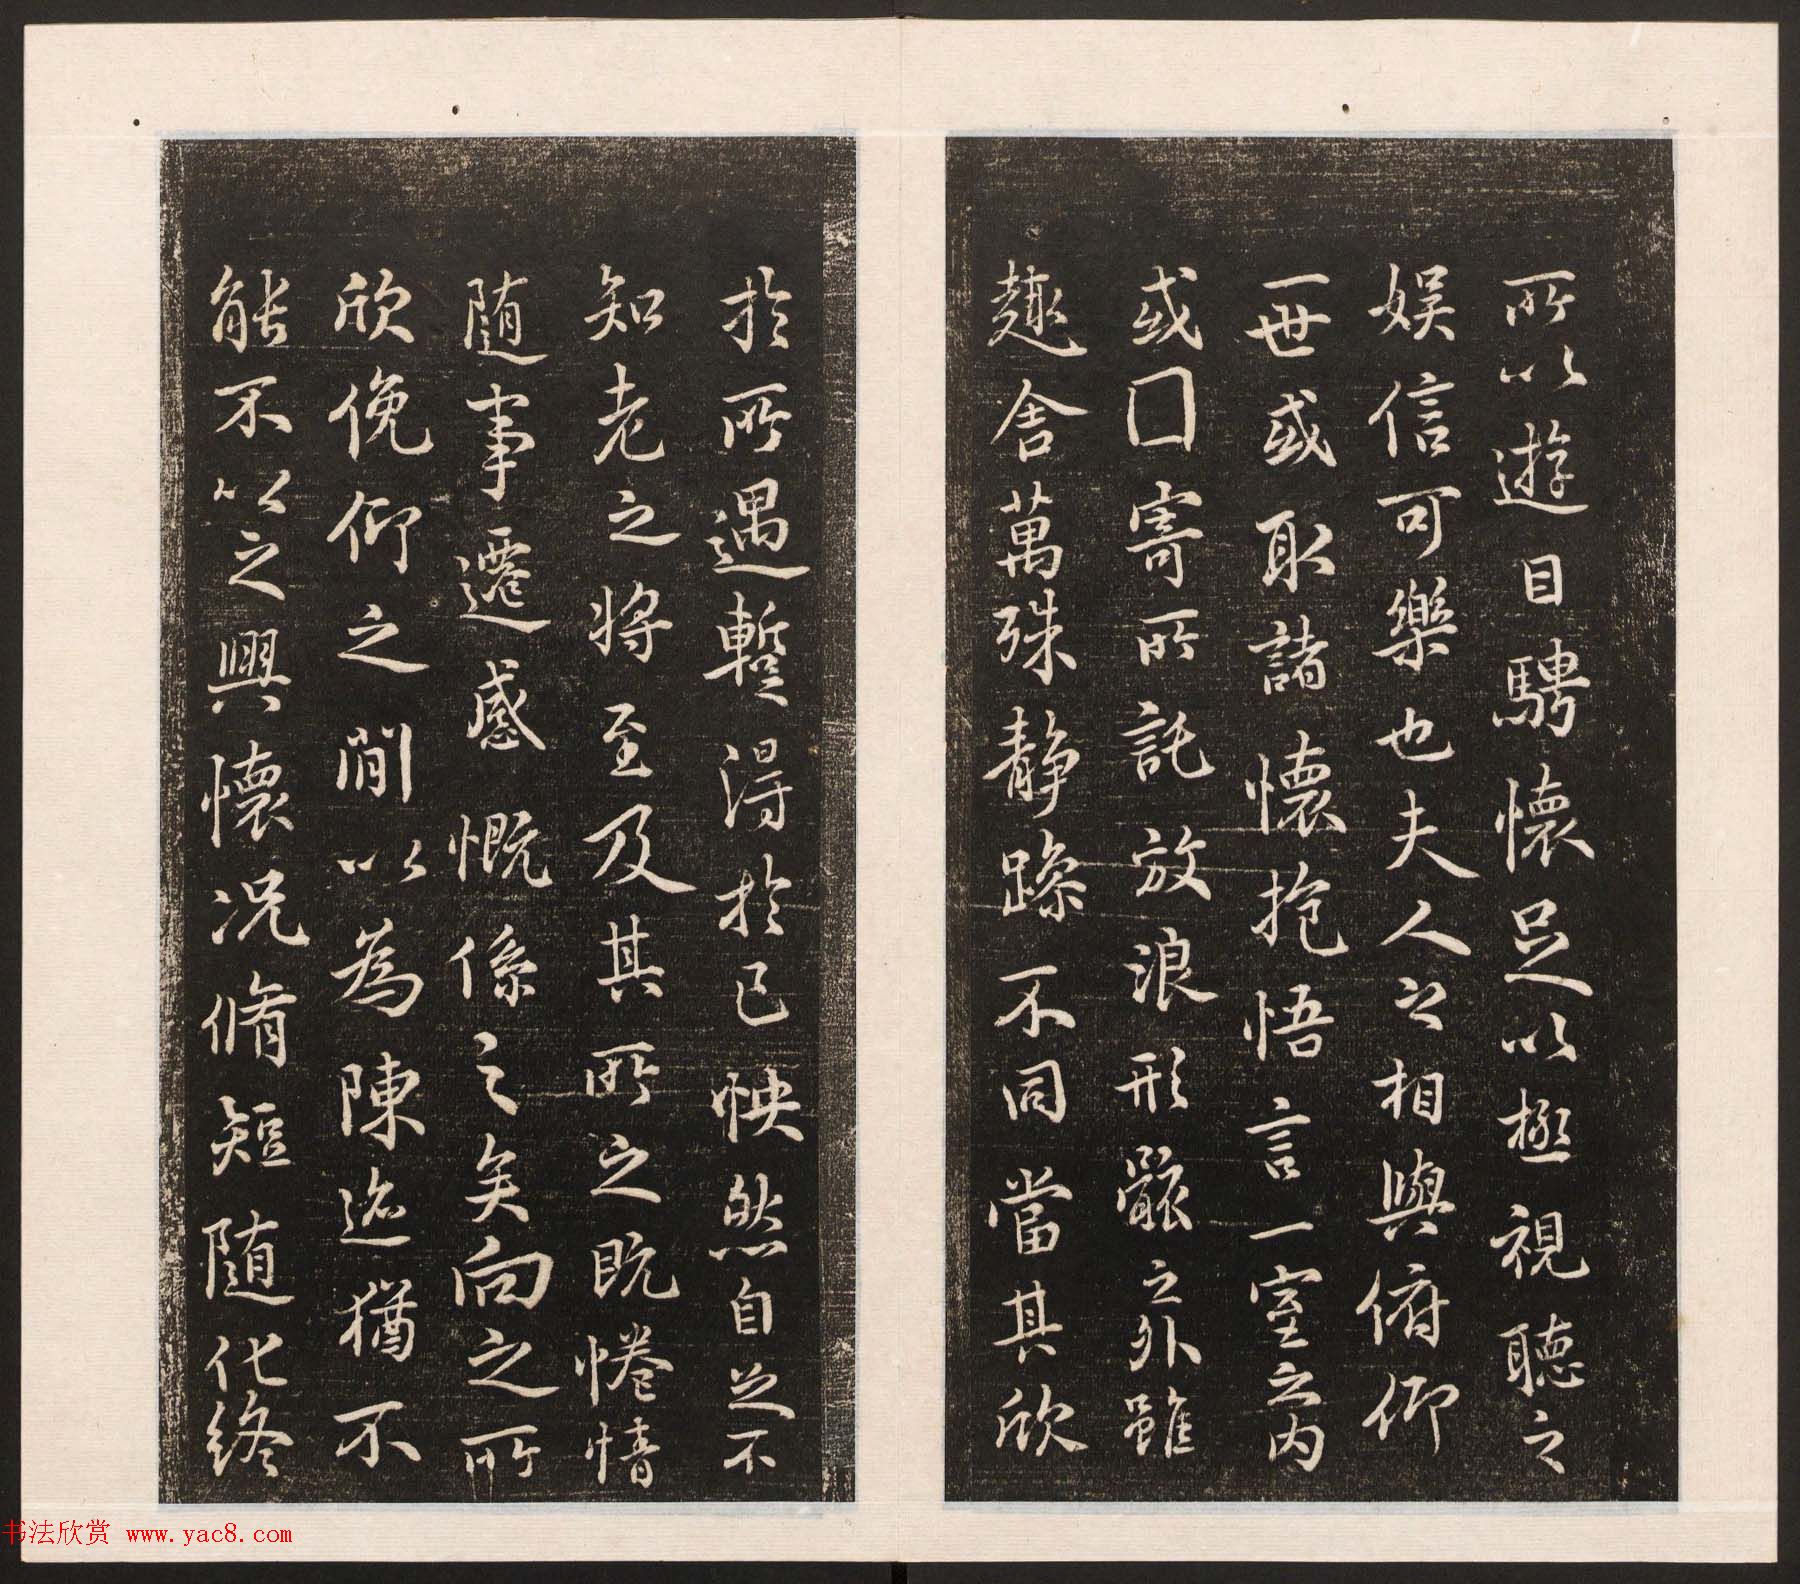 所以遊目騁懷足以極視聽之
娱信可樂也夫人之相與俯仰
一世或取諸懷抱悟言一室之内
或囗寄所託放浪形骸之外雖
趣舍萬殊静躁不同當其欣
於所遇蹔得於己怏然自足不
知老之將至及其所之既惓情
随事遷感慨係之矣向之所
欣俛仰之閒以為陳迹猶不
能不以之興懷況脩短随化終
书法欣赏 www.yac8.com